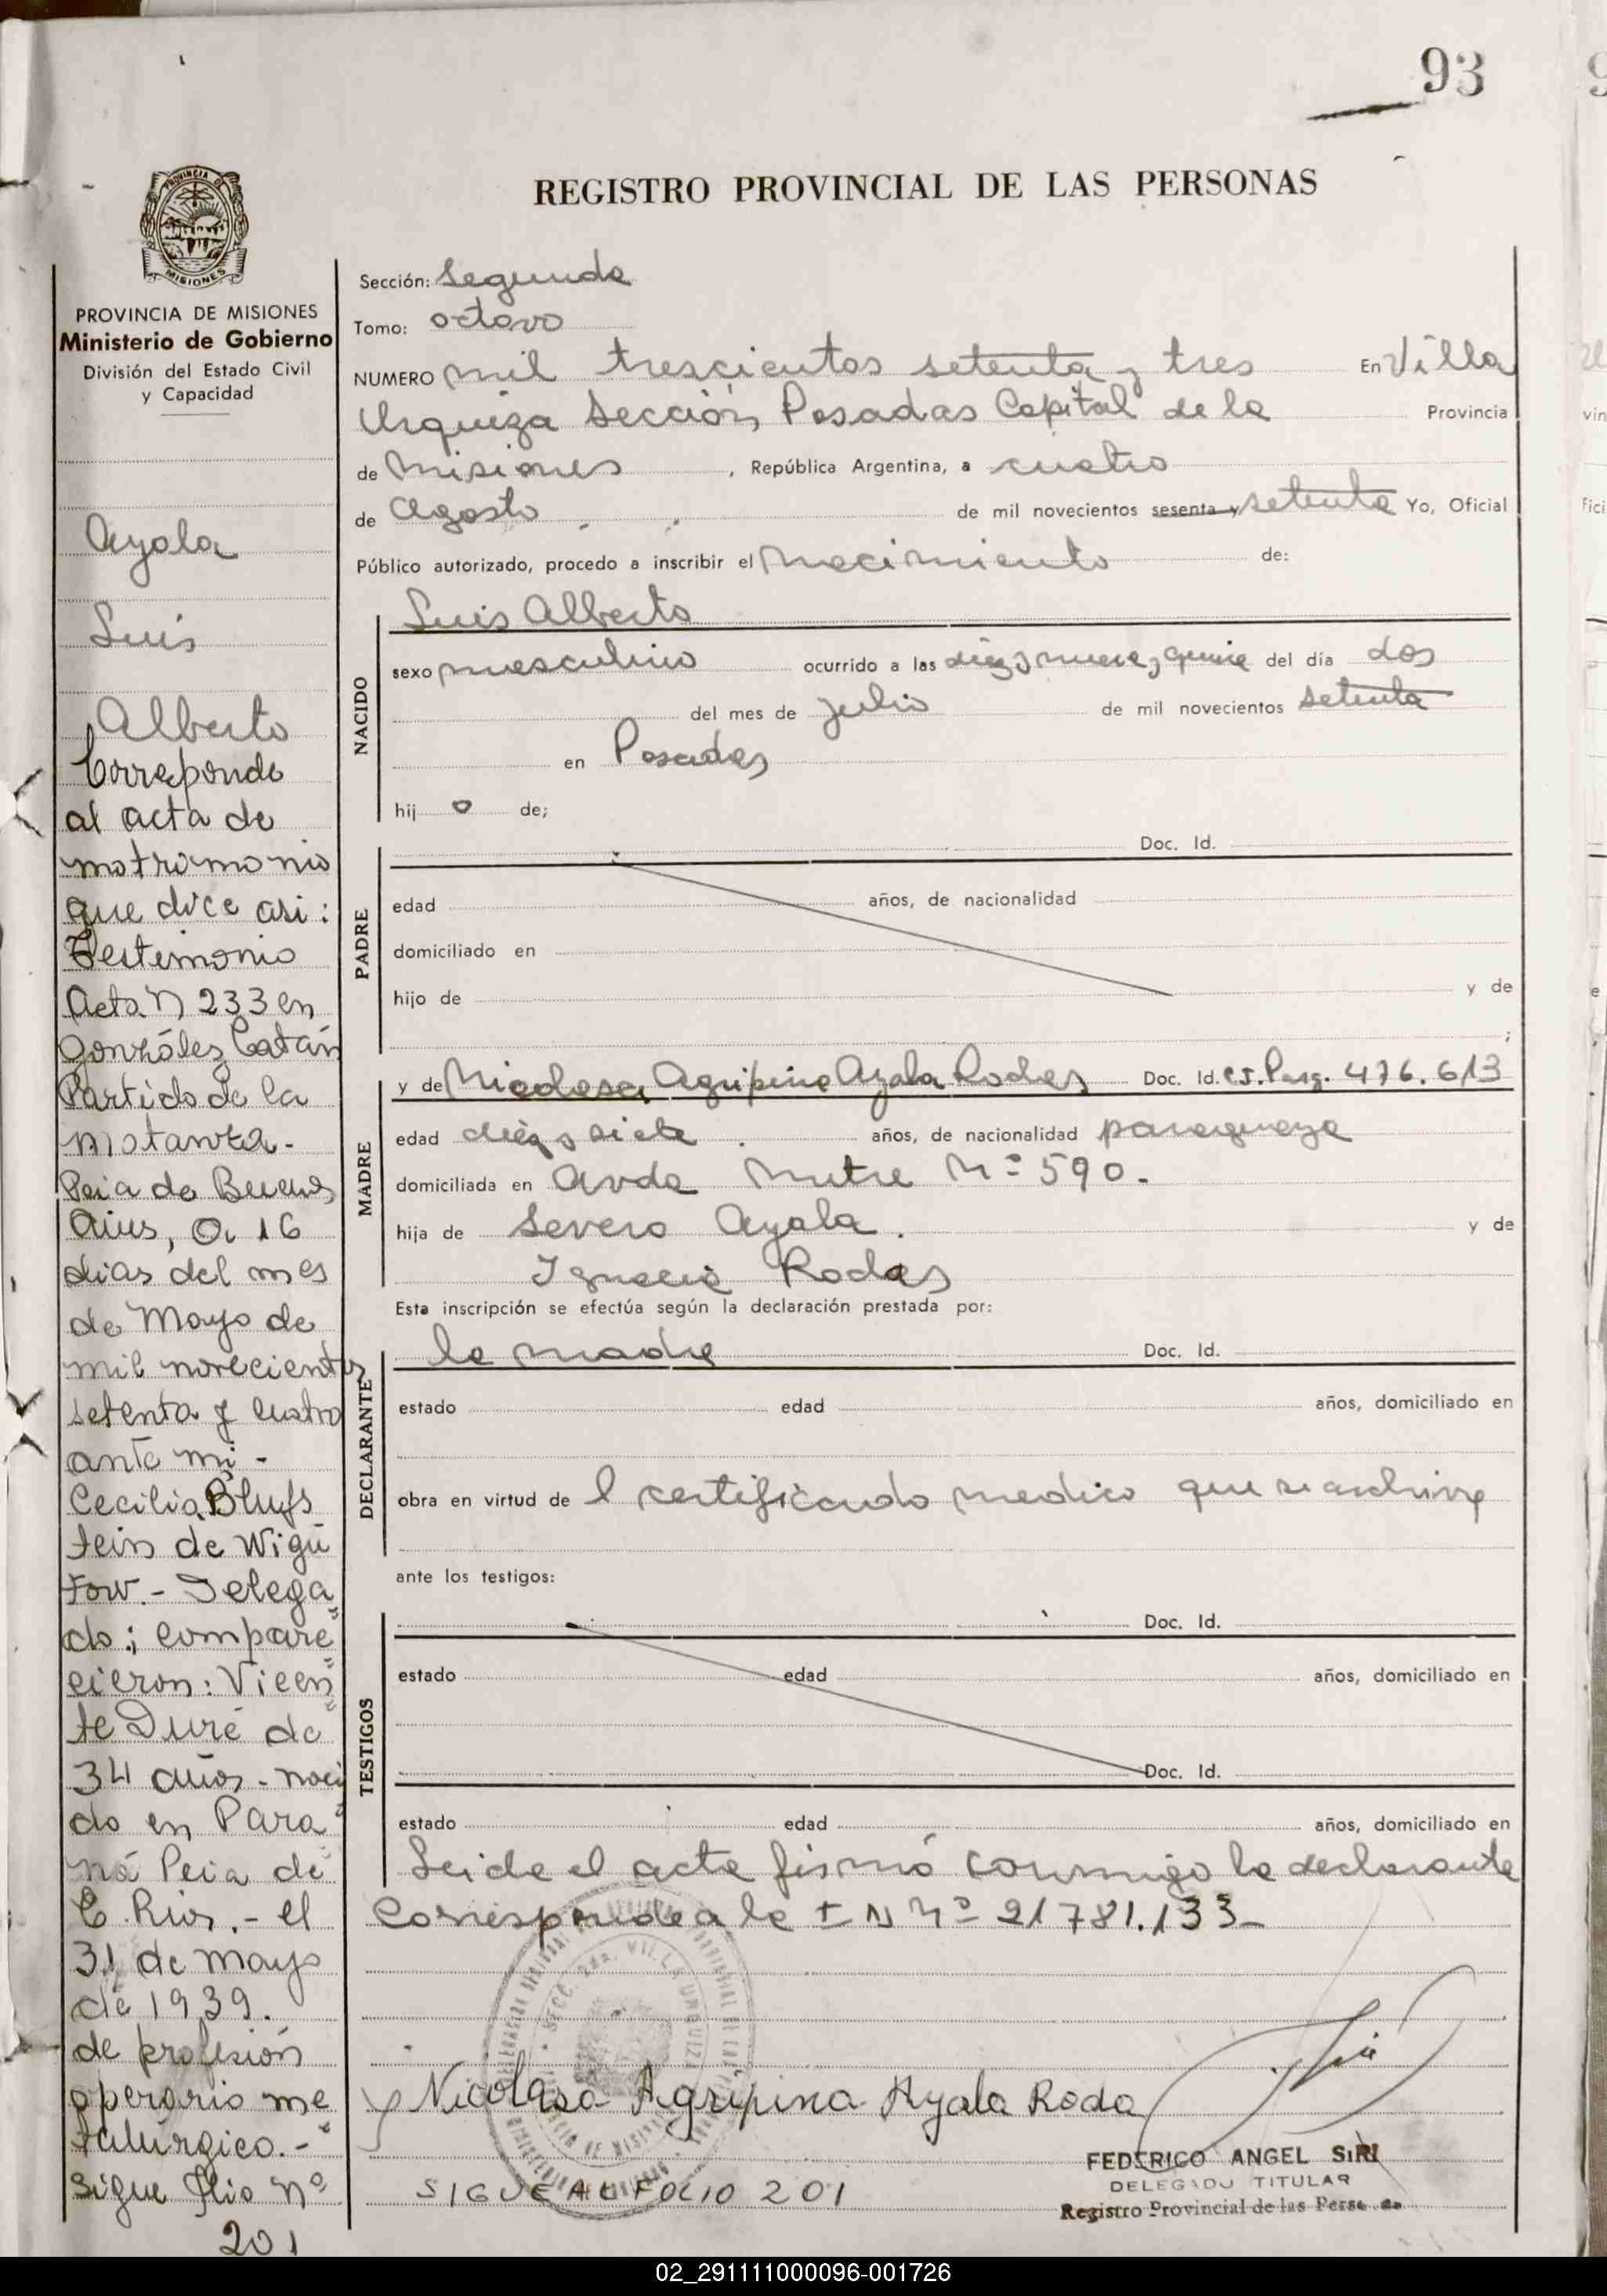 93
PROVINCIA DE MISIONES
REGISTRO PROVINCIAL DE LAS PERSONAS
PROVINCIA DE MISIONES
Ministerio de Gobierno
División del Estado Civil
y Capacidad
Ayala
Luis
Alberto
Correponde
al acta de
matrimonio
que dice asi:
Testimonio
Acta N 233 en
González Catán
Partido de la
Matanza.-
Pcia de Buenos
Aires, a 16
dias del mes
de Mayo de
mil novecientos
setenta y cuatro
ante mi -
Cecilia Blufs
tein de Wigu
tow.- Delega
do; compare
cieron: Vicen
te Duré de
34 años - naci
do en Para
ná Pcia de
E. Rios.- el
31 de mayo
de 1939.
de profesión
operario me
talúrgico.-
Sigue folio nº
201
Sección: Segunda
Tomo: octavo
NUMERO mil trescientos setenta y tres En Villa
Urquiza Sección, Posadas Capital de la Provincia
de Misiones, República Argentina, a cuatro
de Agosto de mil novecientos sesenta y setenta Yo, Oficial
Público autorizado, procedo a inscribir el nacimiento de:
NACIDO
Luis Alberto
sexo masculino ocurrido a las diez y nueve y quince del día dos
del mes de julio de mil novecientos setenta
en Posadas
hij o de;
PADRE
Doc. Id.
edad años, de nacionalidad
domiciliado en
hijo de y de
;
MADRE
y de Nicolasa Agripina Ayala Rodas Doc. Id. C.I. Parg. 476.613
edad diez y siete años, de nacionalidad paraguaya
domiciliada en Avda Mitre Nº 590.
hija de Severo Ayala. y de
Ignacia Rodas
Esta inscripción se efectúa según la declaración prestada por:
DECLARANTE
la madre Doc. Id.
estado edad años, domiciliado en
obra en virtud de l certificado medico que se archiva
ante los testigos:
TESTIGOS
Doc. Id.
estado edad años, domiciliado en
Doc. Id.
estado edad años, domiciliado en
Leida el acta firmó conmigo la declarante
Corresponde a la I N Nº 21781.133-
SECC. 2da. VILLA URQUIZA
Nicolasa Agripina Ayala Roda
FEDERICO ANGEL SIRI
DELEGADO TITULAR
Registro Provincial de las Perso as
SIGUE AL FOLIO 201
02_291111000096-001726